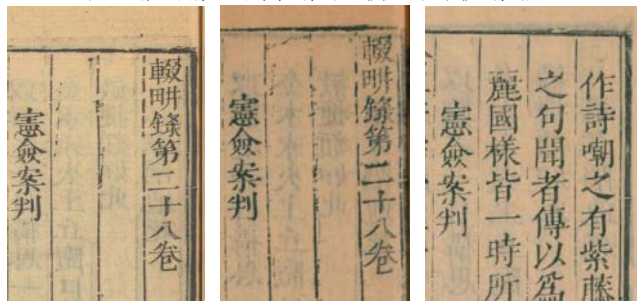 輟畊錄第二十八卷
憲僉案判
輟畊錄第二十八卷
憲僉案判
作詩嘲之有紫藤
之句聞者傳以爲
麗國樣皆一時所
憲僉案判